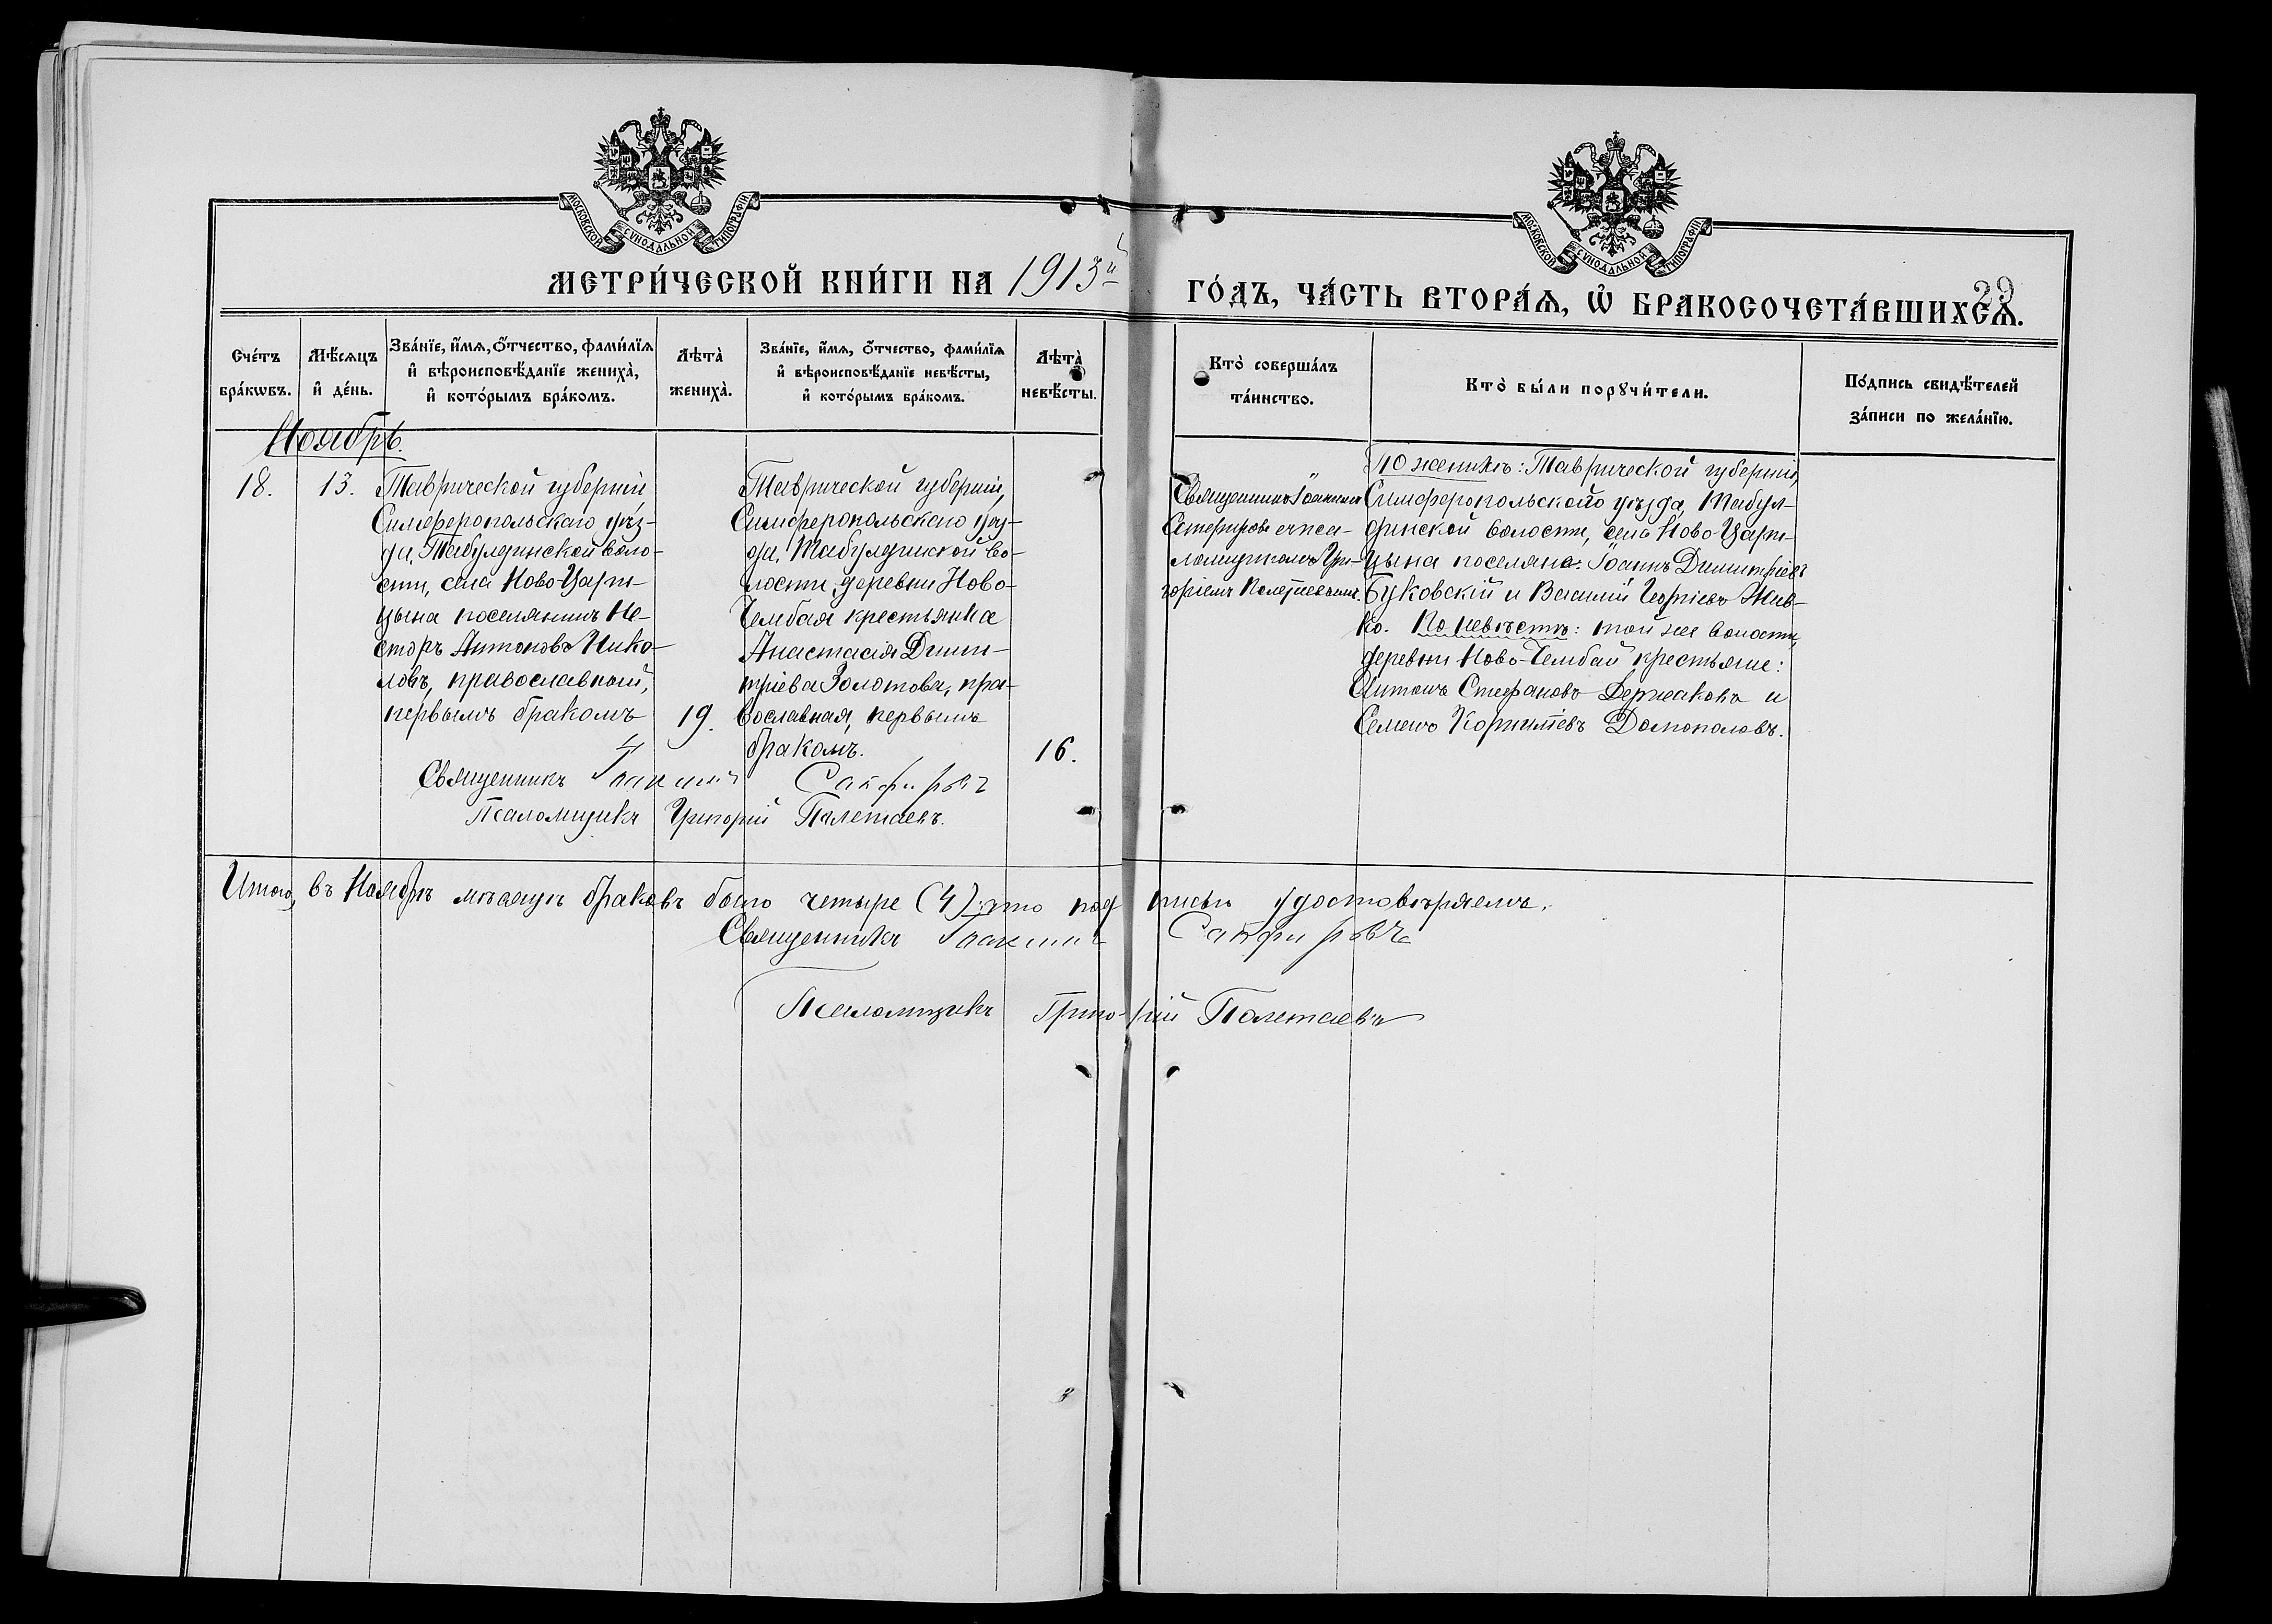 МОСКОВСКОЙ СУНОДАЛЬНОЙ ТИПОГРАФІИ
МОСКОВСКОЙ СУНОДАЛЬНОЙ ТИПОГРАФІИ
МЕТРИ́ЧЕСКОЙ КНИ́ГИ НА 1913й
ГО́ДЪ, ЧА́СТЬ ВТОРА́Ѧ, Ѡ҆ БРАКОСОЧЕТА́ВШИХСѦ.
29
Сче́тъ
бра́кѡвъ.
Мѣ́сяцъ
и҆ де́нь.
Зва́нїе, и҆́мѧ, ѻ҆́тчество, фами́лїѧ
и҆ вѣроисповѣ́данїе жениха̀,
и҆ кото́рымъ бра́комъ.
Лѣта̀
жениха̀.
Зва́нїе, и҆́мѧ, ѻ҆́тчество, фами́лїѧ
и҆ вѣроисповѣ́данїе невѣ́сты,
и҆ кото́рымъ бра́комъ.
Лѣта̀
невѣ́сты.
Кто̀ соверша́лъ
та́инство.
Кто̀ бы́ли порꙋчи́тели.
По́дпись свидѣ́телей
за́писи по жела́нїю.
Ноябрь.
18.
13.
Таврической губерніи
Симферопольскаго уѣз-
да, Табулдинской воло-
сти, села Ново-Цари-
цына поселянинъ Не-
сторъ Антоновъ Нико-
ловъ, православный,
первымъ бракомъ
19.
Таврической губерніи,
Симферопольскаго уѣз-
да, Табулдинской во-
лости, деревни Ново-
Чембая крестьянка
Анастасія Дими-
тріева Золотова, пра-
вославная, первымъ
бракомъ.
16.
Священникъ Іоакимъ
Сапфировъ съ пса-
ломщикомъ Гри-
горіемъ Полетаевымъ.
По женихѣ: Таврической губерніи,
Симферопольскаго уѣзда, Табул-
динской волости, села Ново-Цари-
цына поселяне: Іоаннъ Димитріевъ
Буковскій и Василій Георгіевъ Жив-
ко. По невѣстѣ: той же волости,
деревни Ново-Чембай крестьяне:
Антонъ Стефановъ Держаковъ и
Семенъ Корниліевъ Домополовъ.
Священникъ Іоакимъ Сапфировъ
Псаломщикъ Григорій Полетаевъ.
Итого, въ Ноябрѣ мѣсяцѣ браковъ было четыре (4), что подписью удостовѣряемъ.
Священникъ Іоакимъ Сапфировъ
Псаломщикъ Григорій Полетаевъ